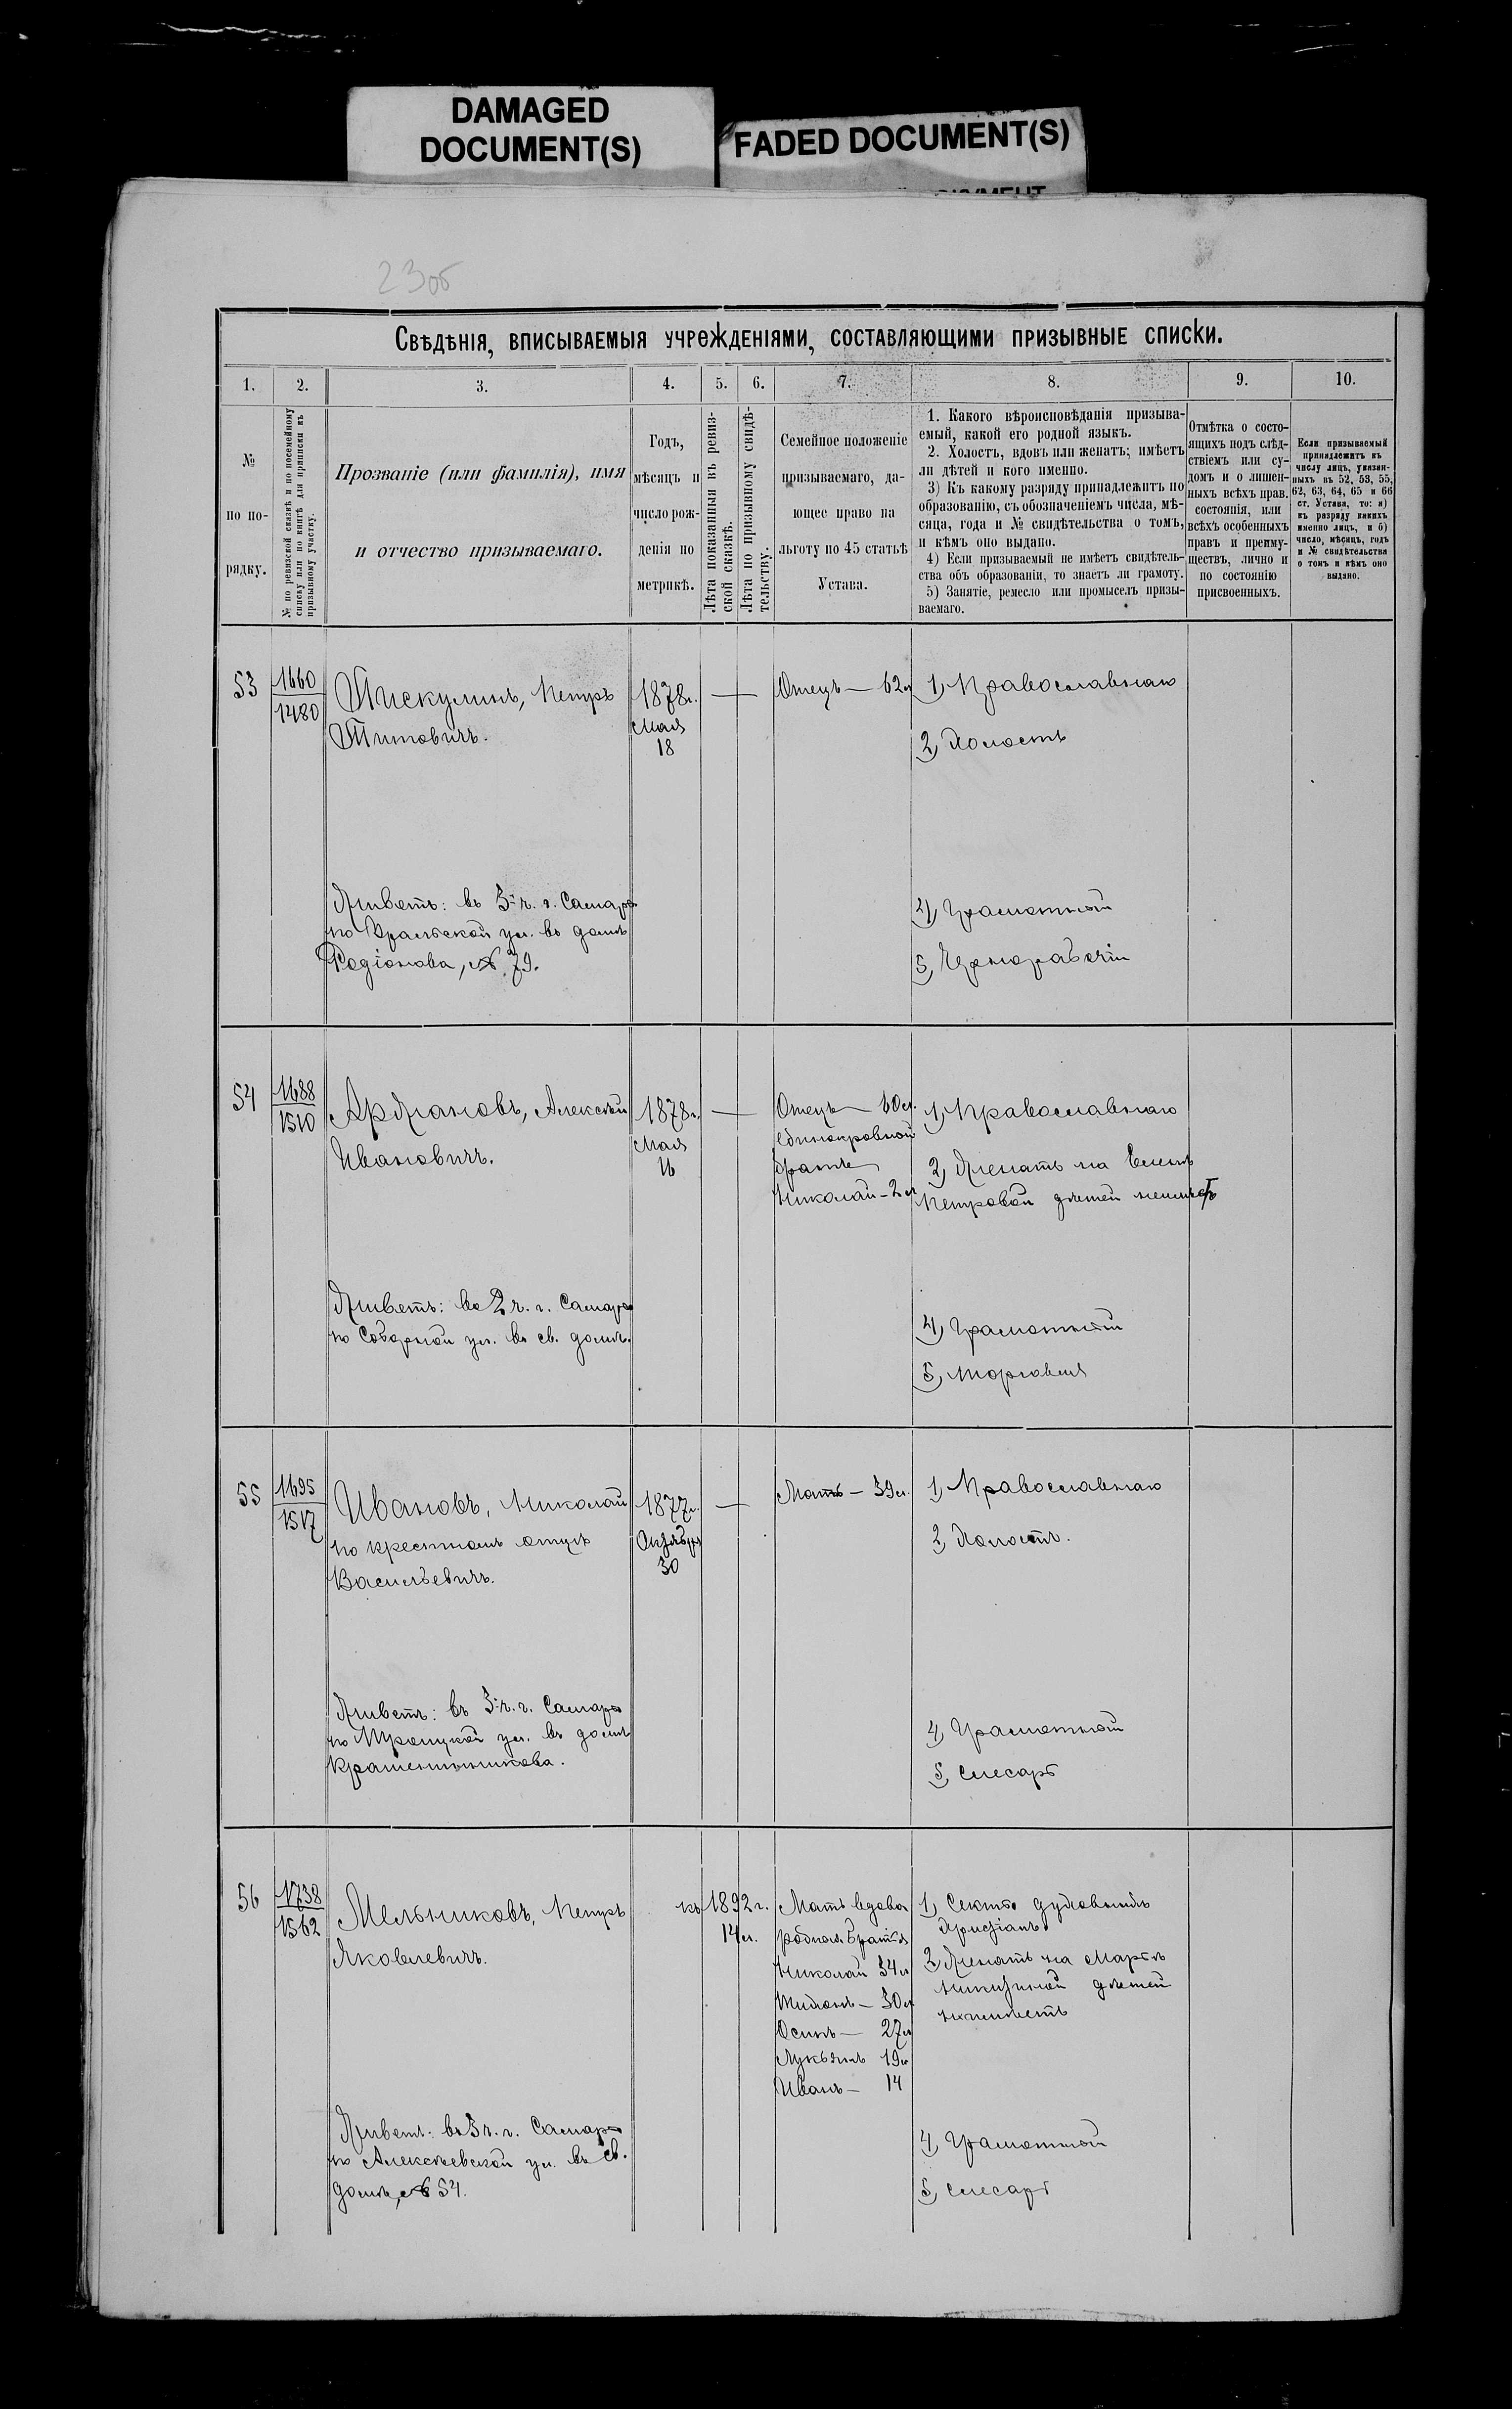 DAMAGED
DOCUMENT(S)
FADED DOCUMENT(S)
23об
Свѣдѣнія, вписываемыя учрежденіями, составляющими призывные списки.
1.
2.
3.
4.
5.
6.
7.
8.
9.
10.
№
по по-
рядку.
№ по ревизской сказкѣ и по посемейному
списку или по книгѣ для приписки къ
призывному участку.
Прозваніе (или фамилія), имя
и отчество призываемаго.
Годъ,
мѣсяцъ и
число рож-
денія по
метрикѣ.
Лѣта показанныя въ ревиз-
ской сказкѣ.
Лѣта по призывному свидѣ-
тельству.
Семейное положеніе
призываемаго, да-
ющее право на
льготу по 45 статьѣ
Устава.
1. Какого вѣроисповѣданія призыва-
емый, какой его родной языкъ.
2. Холостъ, вдовъ или женатъ; имѣетъ
ли дѣтей и кого именно.
3) Къ какому разряду принадлежитъ по
образованію, съ обозначеніемъ числа, мѣ-
сяца, года и № свидѣтельства о томъ,
и кѣмъ оно выдано.
4) Если призываемый не имѣетъ свидѣтель-
ства объ образованіи, то знаетъ ли грамоту.
5) Занятіе, ремесло или промыселъ призы-
ваемаго.
Отмѣтка о состо-
ящихъ подъ слѣд-
ствіемъ или су-
домъ и о лишен-
ныхъ всѣхъ прав.
состоянія, или
всѣхъ особенныхъ
правъ и преиму-
ществъ, лично и
по состоянію
присвоенныхъ.
Если призываемый
принадлежитъ къ
числу лицъ, указан-
ныхъ въ 52, 53, 55,
62, 63, 64, 65 и 66
ст. Устава, то: а)
къ разряду какихъ
именно лицъ, и б)
число, мѣсяцъ, годъ
и № свидѣтельства
о томъ и кѣмъ оно
выдано.
53
1660
1480
Пискулинъ, Петръ
Титовичъ.
1878г.
Мая
18
—
Отецъ — 62л
1, Православнаго
2, Холостъ
Живетъ: въ 3-ч. г. Самары
по Уральской ул. въ домѣ
Родіонова, № 79.
4, Грамотный
5, Чернорабочій
54
1688
1510
Аржановъ, Алексѣй
Ивановичъ.
1878г.
Мая
16
—
Отецъ — 60л.
единокровной
братъ
Николай — 2л
1, Православнаго
2, Женатъ на Еленѣ
Петровой дѣтей неимѣетъ
Живетъ: въ 2 ч. г. Самары
по Соборной ул. въ св. домѣ.
4, Грамотный
5, Торговля
55
1695
1517
Ивановъ, Николай
по крестномъ отцѣ
Васильевичъ.
1877г.
Октября
30
—
Мать — 39л.
1, Православнаго
2, Холостъ.
Живетъ: въ 3-ч. г. Самары
по Троицкой ул. въ домѣ
Крашенинникова.
4, Грамотный
5, Слесарь
56
1738
1562
Мельниковъ, Петръ
Яковлевичъ.
къ 1892г.
14л.
Мать вдова
родные братья
Николай 34л
Филипъ — 30л
Осипъ — 27л
Лукьянъ 19л
Иванъ — 14
1, Секты духовныхъ
христіанъ
2, Женатъ на Марьѣ
Никитиной дѣтей
неимѣетъ
Живетъ: въ 3 ч. г. Самары
по Алексѣевской ул. въ св.
домѣ, № 54.
4, Грамотный
5, Слесарь